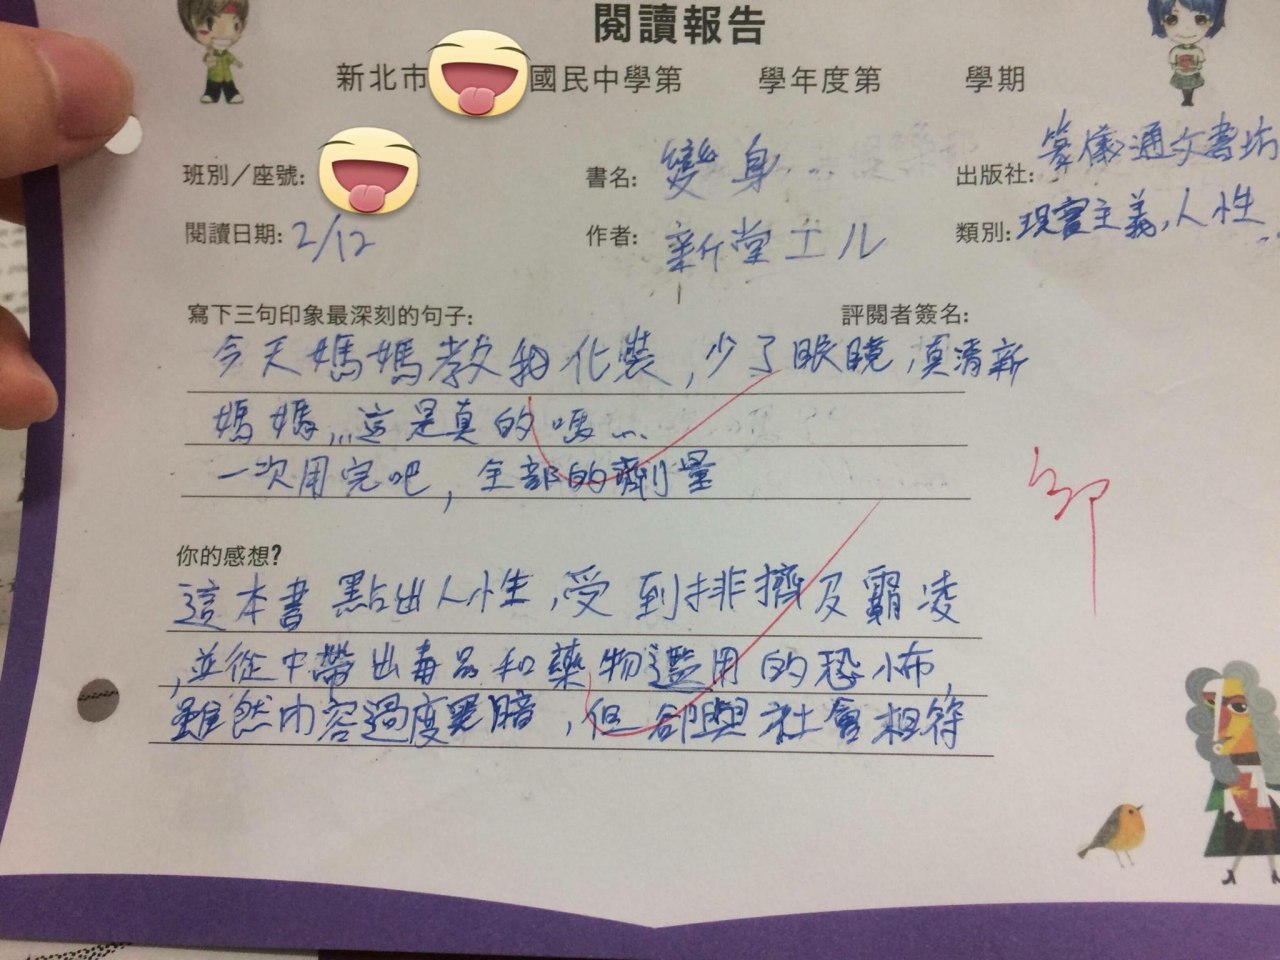 閱讀報告
新北市 國民中學第 學年度第 學期
班別／座號:
書名: 變身...
出版社: 儀通文書坊
閱讀日期: 2/12
作者: 新堂エル
類別: 現實主義,人性
寫下三句印象最深刻的句子:
評閱者簽名:
今天媽媽教我化裝,少了眼鏡,真清新
媽媽,,,這是真的嗎...
一次用完吧,全部的劑量
你的感想?
這本書點出人性,受到排擠及霸凌
,並從中帶出毒品和藥物濫用的恐怖,
雖然內容過度黑暗,但卻與社會相符